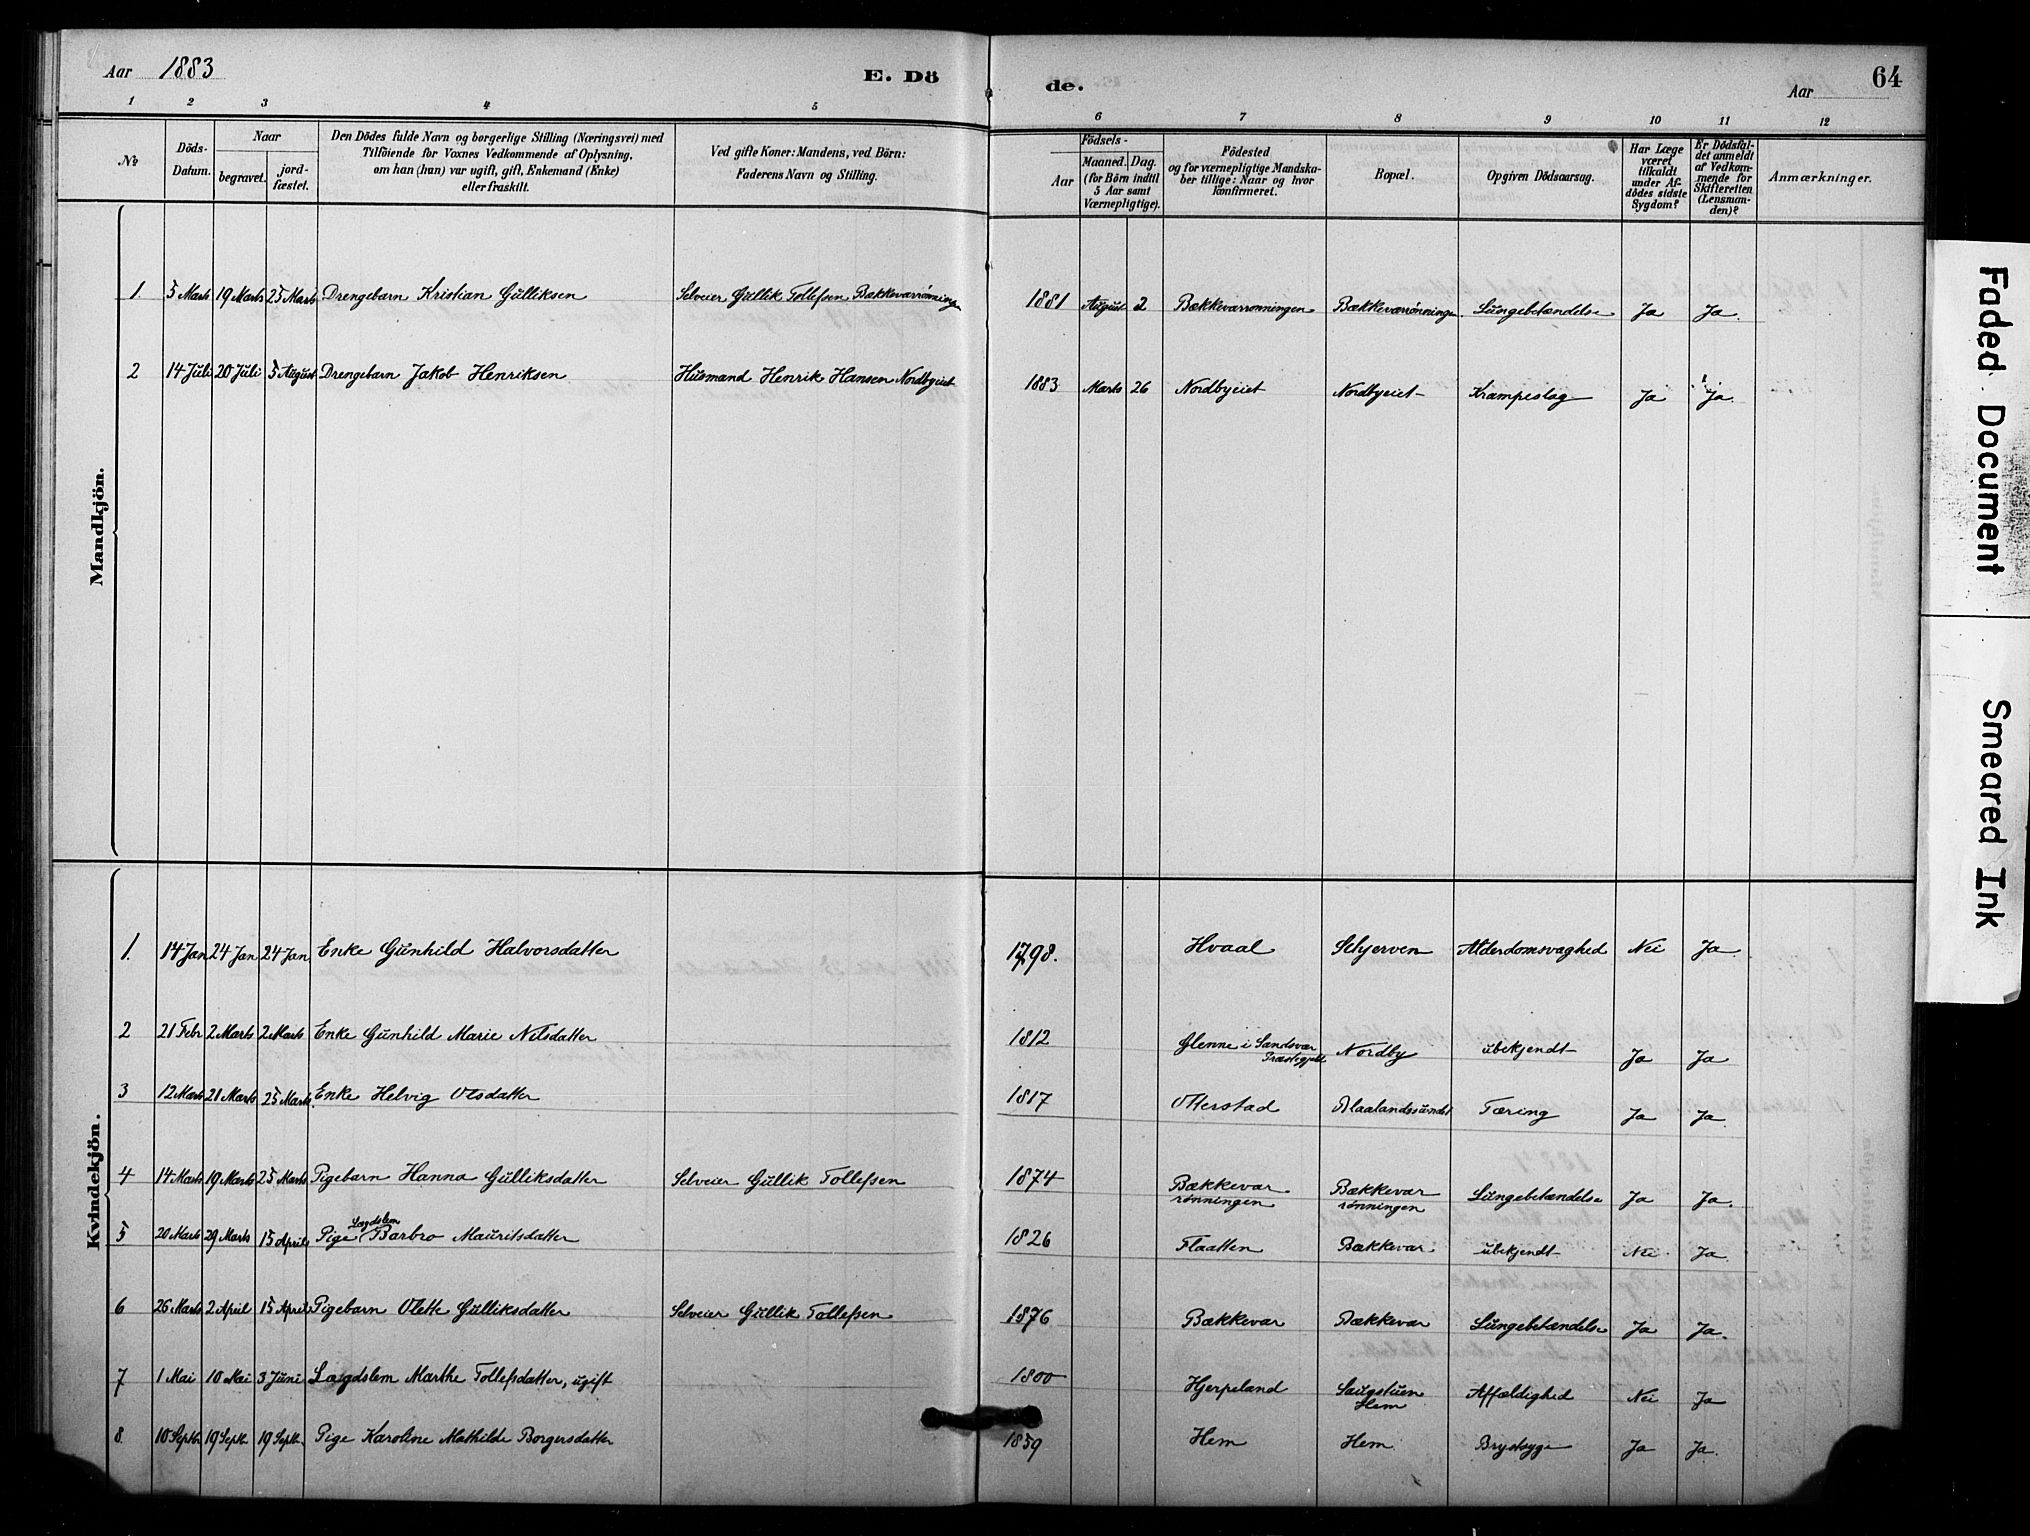 Aar 1883
E. Dö
de.
Aar
64
1 2 3 4 5 6 7 8 9 10 11 12
No
Döds-Datum.
Naar
begravet.
jord-fæstet.
Den Dödes fulde Navn og borgerlige Stilling (Næringsvei) med
Tilföiende for Voxnes Vedkommende af Oplysning,
om han (hun) var ugift, gift, Enkemand (Enke)
eller fraskilt.
Ved gifte Koner: Mandens, ved Börn:
Faderens Navn og Stilling.
Födsels-
Aar
Maaned. Dag.
(for Börn indtil
5 Aar samt
Værnepligtige).
Födested
og for værnepligtige Mandska-
ber tillige: Naar og hvor
konfirmeret.
Bopæl.
Opgiven Dödsaarsag.
Har Læge
været
tilkaldt
under Af-
dödes sidste
Sygdom?
Er Dödsfal-
det anmeldt
af Vedkom-
mende for
Skifteretten
(Lensman-
den)?
Anmærkninger.
Mandkjön.
1 5 Marts 19 Marts 25 Marts Drengebarn Kristian Gulliksen Selveier Gullik Tollefsen Bækkevarrønningen 1881 August 2 Bækkevarrønningen Bækkevarrønningen Lungebetændelse Ja Ja
2 14 Juli 20 Juli 5 August Drengebarn Jakob Henriksen Husmand Henrik Hansen Nordbyeiet 1883 Marts 26 Nordbyeiet Nordbyeiet Krampeslag Ja Ja.
Kvindekjön.
1. 14 Jan 24 Jan 24 Jan Enke Gunhild Halvorsdatter 1798. Hvaal Schjerven Alderdomsvaghed Nei Ja
2 21 Febr 2 Marts 2 Marts Enke Gunhild Marie Nilsdatter 1812 Glenne i Sandsvær Præstegjeld Nordby ubekjendt Ja Ja
3 12 Marts 21 Marts 25 Marts Enke Helvig Olsdatter 1817 Otterstad Blaalandssundet Tæring Ja Ja.
4 14 Marts 19 Marts 25 Marts Pigebarn Hanna Gulliksdatter Selveier Gullik Tollefsen 1874 Bækkevar rønningen Bækkevar rønningen Lungebetændelse Ja Ja.
5 20 Marts 29 Marts 15 April Pige Lægdslem Barbro Mauritsdatter 1826 Flaatten Bækkevar ubekjendt Nei Ja
6 26 Marts 2 April 15 April Pigebarn Olette Gulliksdatter Selveier Gullik Tollefsen 1876 Bækkevar Bækkevar Lungebetændelse Ja Ja.
7 1 Mai 10 Mai 3 Juni Lægdslem Marthe Tollefsdatter, ugift 1800 Hjerpeland Saugstuen Hem Affældighed Nei Ja
8. 10 Septbr 19 Septr. 19 Septr. Pige Karoline Mathilde Borgersdatter 1859 Hem Hem Brystsyge Ja Ja.
Faded Document
Smeared Ink